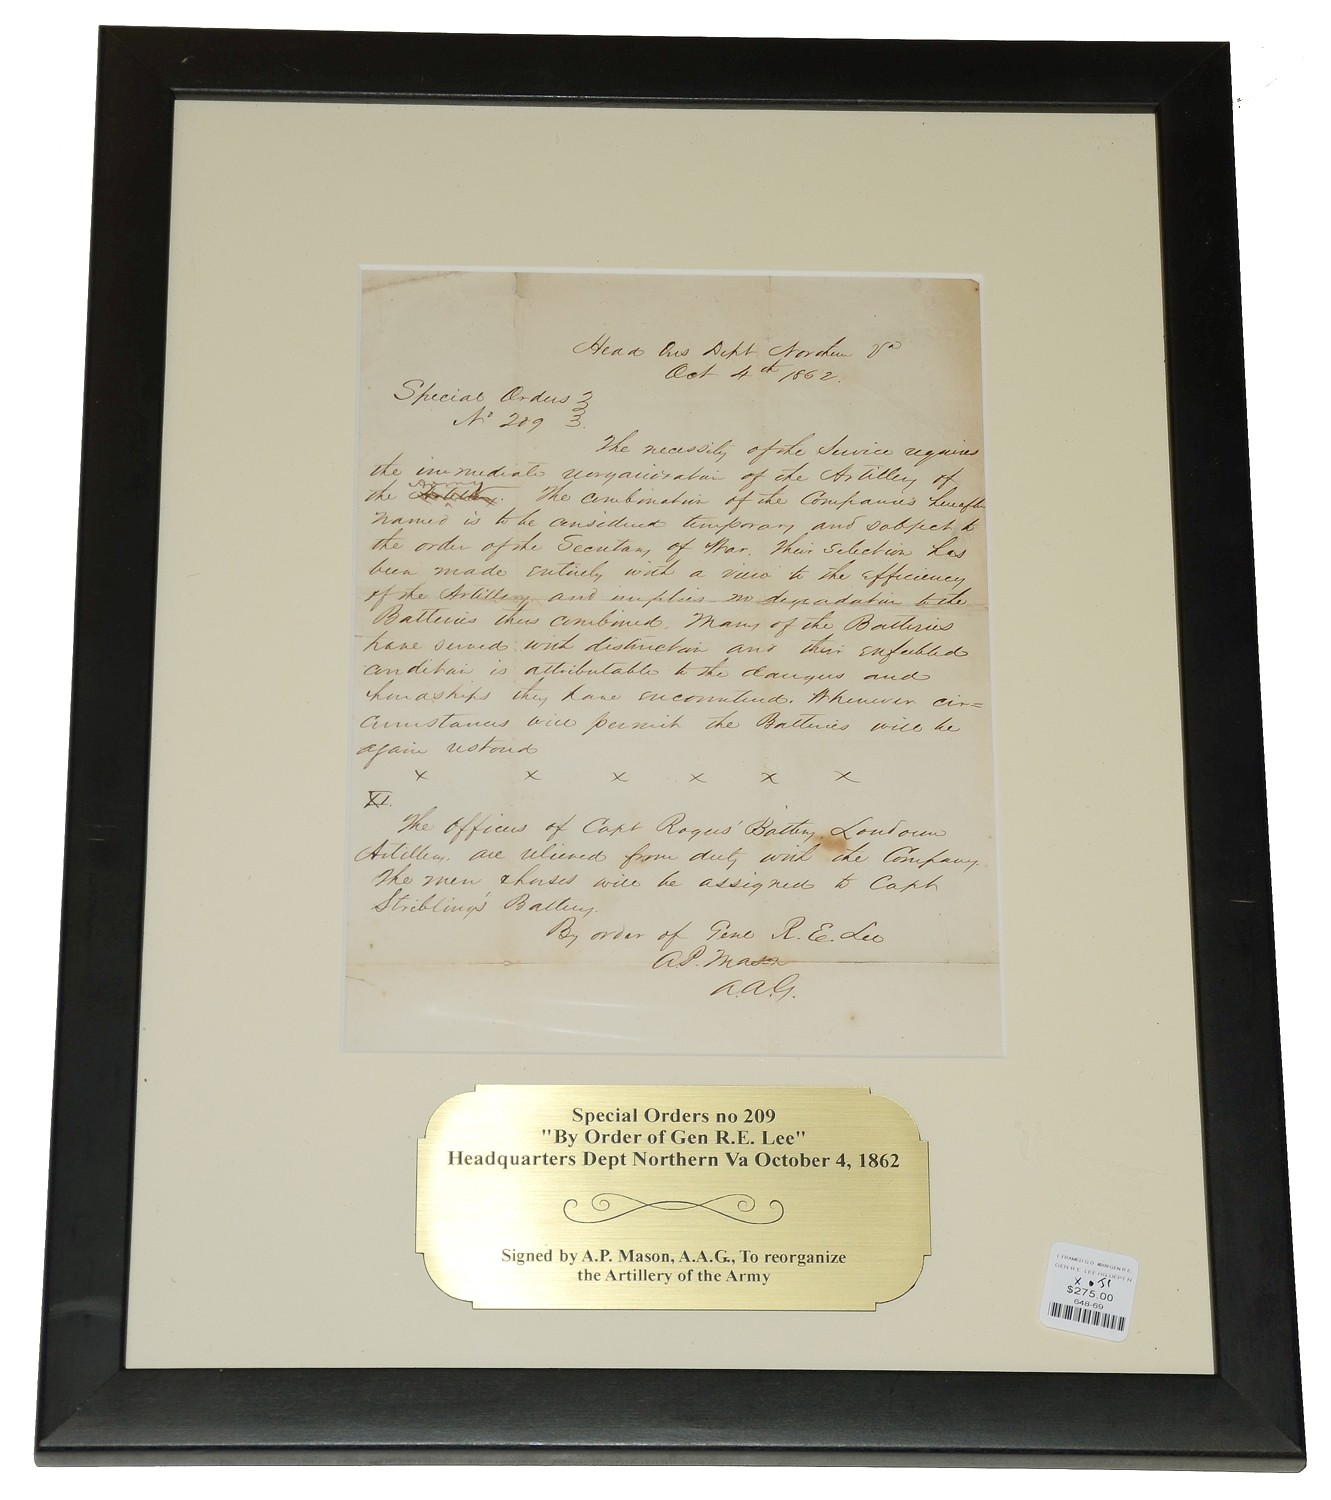 Head Qrs Dept Northern Va
Oct 4th 1862.
Special Orders }
No 209 }
The necessity of the Service requires
the immediate reorganization of the Artillery of
the Army Artillery. The combination of the Companies hereafter
named is to be considered temporary and subject to
the order of the Secretary of War. Their selection has
been made entirely with a view to the efficiency
of the Artillery and implies no degradation to the
Batteries thus combined. Many of the Batteries
have served with distinction and their enfeebled
condition is attributable to the dangers and
hardships they have encountered. Whenever cir=
cumstances will permit the Batteries will be
again restored
x x x x x x
XI.
The Officers of Capt Rogers' Battery, Loudoun
Artillery are relieved from duty with the Company.
The men & horses will be assigned to Capt
Stribling's Battery.
By order of Genl R. E. Lee
A.P. Mason
A.A.G.
Special Orders no 209
"By Order of Gen R.E. Lee"
Headquarters Dept Northern Va October 4, 1862
Signed by A.P. Mason, A.A.G., To reorganize
the Artillery of the Army
GEN R.E. LEE HQ DEPT N
$275.00
648-69